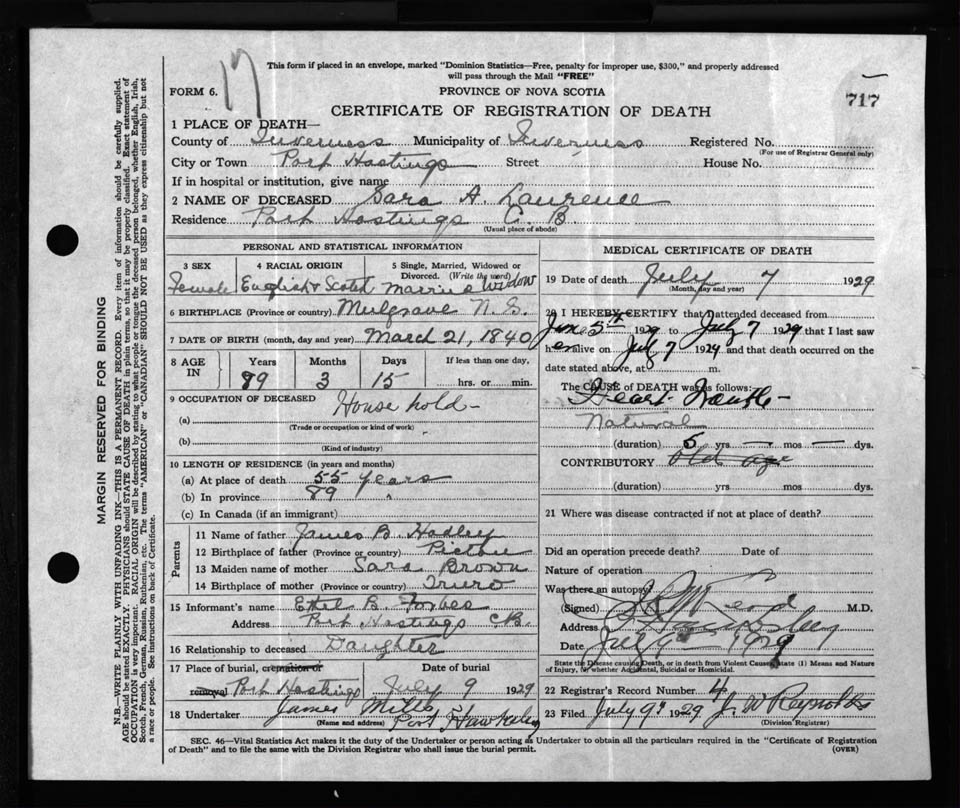 This form if placed in an envelope, marked "Dominion Statistics—Free, penalty for improper use, $300," and properly addressed
will pass through the Mail "FREE"
17
FORM 6.
PROVINCE OF NOVA SCOTIA
717
CERTIFICATE OF REGISTRATION OF DEATH
1 PLACE OF DEATH—
County of Inverness Municipality of Inverness Registered No.
(For use of Registrar General only)
City or Town Port Hastings Street House No.
If in hospital or institution, give name
2 NAME OF DECEASED Sara A. Laurence
Residence Port Hastings C. B.
(Usual place of abode)
PERSONAL AND STATISTICAL INFORMATION
3 SEX
Female
4 RACIAL ORIGIN
English & Scotch
5 Single, Married, Widowed or
Divorced. (Write the word)
Married Widow
6 BIRTHPLACE (Province or country) Mulgrave N. S.
7 DATE OF BIRTH (month, day and year) March 21, 1840
8 AGE IN
Years Months Days If less than one day.
89 3 15 hrs. or min.
9 OCCUPATION OF DECEASED
(a) House hold
(Trade or occupation or kind of work)
(b)
(Kind of industry)
10 LENGTH OF RESIDENCE (in years and months)
(a) At place of death 55 years
(b) In province 89 "
(c) In Canada (if an immigrant)
Parents
11 Name of father James B. Hadley
12 Birthplace of father (Province or country) Pictou
13 Maiden name of mother Sara Brown
14 Birthplace of mother (Province or country) Truro
15 Informant's name Ethel B. Forbes
Address Port Hastings C.B.
16 Relationship to deceased Daughter
17 Place of burial, cremation or Date of burial
removal Port Hastings July 9 1929
18 Undertaker James Mills
(Name and address) Port Hawkesbury
MEDICAL CERTIFICATE OF DEATH
19 Date of death July 7 1929
(Month, day and year)
20 I HEREBY CERTIFY that I attended deceased from
June 5th 1929 to July 7 1929 that I last saw
h er alive on July 7 1929 and that death occurred on the
date stated above, at m.
The CAUSE OF DEATH was as follows:
Heart Trouble
Natural
(duration) 5 yrs — mos — dys.
CONTRIBUTORY Old age
(duration) yrs. mos. dys.
21 Where was disease contracted if not at place of death?
Did an operation precede death? Date of
Nature of operation
Was there an autopsy?
(Signed) M.D.
Address
Date July 1929
State the Disease causing Death, or in death from Violent Causes, State (1) Means and Nature
of Injury, (2) whether Accidental, Suicidal or Homicidal.
22 Registrar's Record Number 4
23 Filed July 9th 1929 J. W Reynolds
(Division Registrar)
SEC. 46—Vital Statistics Act makes it the duty of the Undertaker or person acting as Undertaker to obtain all the particulars required in the "Certificate of Registration
of Death" and to file the same with the Division Registrar who shall issue the burial permit. (OVER)
MARGIN RESERVED FOR BINDING
N.B.—WRITE PLAINLY WITH UNFADING INK—THIS IS A PERMANENT RECORD. Every item of information should be carefully supplied.
AGE should be stated EXACTLY. PHYSICIANS should STATE CAUSE OF DEATH in plain terms, so that it may be properly classified. Exact statement of
OCCUPATION is very important. RACIAL ORIGIN will be described by stating to what people or tongue the deceased person belonged, whether English, Irish,
Scotch, French, German, Russian, Ruthenian, etc. The terms "AMERICAN" or "CANADIAN" SHOULD NOT BE USED as they express citizenship but not
a race or people. See instructions on back of Certificate.